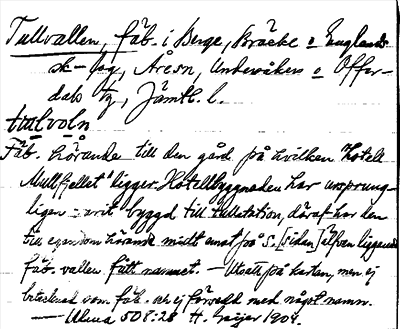 Tullvallen, fäb. i Berge, Bräcke o Englands
sk-fög, Åresn, Undersåkers o Offer-
dals tg, Jämtl. l.
tulvoln
Fäb. hörande till den gård på hvilken hotell
Mullfjellet ligger. Hotellbyggnaden har ursprung-
ligen varit byggd till tullstation, däraf har den
till egendom hörande midt emot på s. [sidan] älfven liggande
fäb. vallen fått namnet. — Utsatt på kartan, men ej
betecknad som fäb. och ej försedd med något namn.
— Ulma 508:28 H. Geijer 1908.